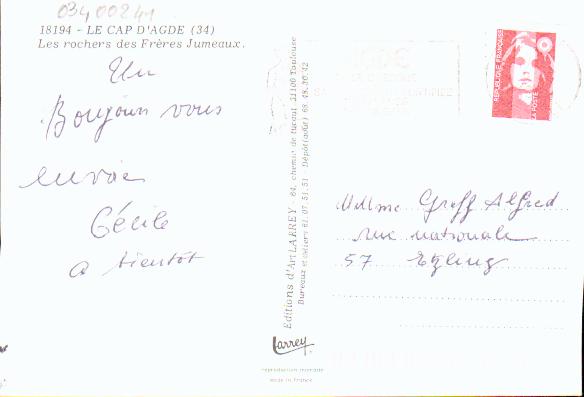 03400241
18194 - LE CAP D'AGDE (34)
Les rochers des Frères Jumeaux.
Un
Bonjour vous
envoie
Cécile
a bientôt
Editions d'Art LARREY - 84, chemin de tucaut, 31100 Toulouse
Bureaux et ateliers 61.07.51.51 - Dépôt (août) 68.48.30.42
Larrey
reproduction interdite
made in France
AGDE
RÉPUBLIQUE FRANÇAISE
LA POSTE
Mdme Greff Alfred
rue nationale
57 Etzling